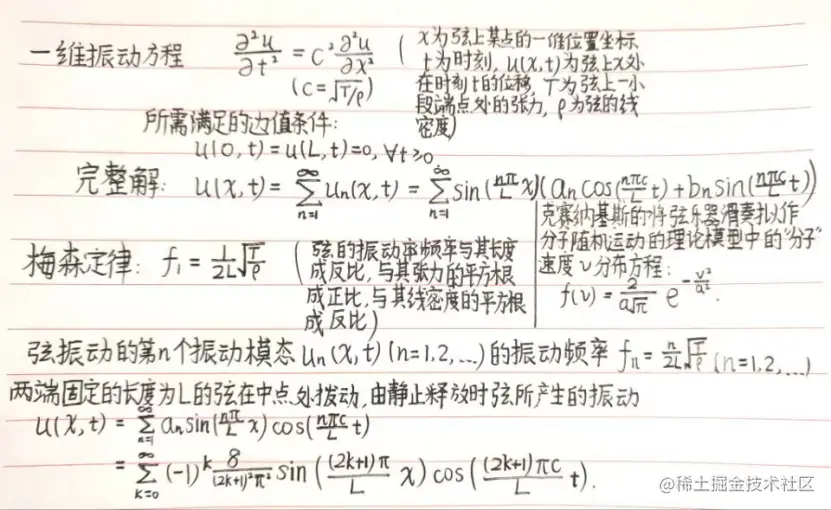 一维振动方程 ∂²u/∂t² = C² ∂²u/∂x²
(C=√T/ρ)
(x为弦上某点的一维位置坐标
t为时刻, u(x,t)为弦上x处
在时刻t的位移, T为弦上一小
段端点处的张力, ρ为弦的线
密度)
所需满足的边值条件:
u(0,t)=u(L,t)=0, ∀t≥0
完整解: u(x,t) = ∑_{n=1}^{∞} u_n(x,t) = ∑_{n=1}^{∞} sin(nπ/L x)(a_n cos(nπc/L t)+b_n sin(nπc/L t))
梅森定律: f₁ = 1/2L √T/ρ
(弦的振动率频率与其长度
成反比,与其张力的平方根
成正比,与其线密度的平方根
成反比)
克赛纳基斯的将弦乐器滑奏扎以作
分子随机运动的理论模型中的"分子"
速度v分布方程:
f(v) = 2/(a√π) e^{-v²/a²}.
弦振动的第n个振动模态 u_n(x,t) (n=1,2,...)的振动频率 f_n = n/2L √T/ρ (n=1,2,...)
两端固定的长度为L的弦在中点处拨动,由静止释放时弦所产生的振动
u(x,t) = ∑_{n=1}^{∞} a_n sin(nπ/L x) cos(nπc/L t)
= ∑_{k=0}^{∞} (-1)^k 8/((2k+1)²π²) sin((2k+1)π/L x) cos((2k+1)πc/L t).
@稀土掘金技术社区